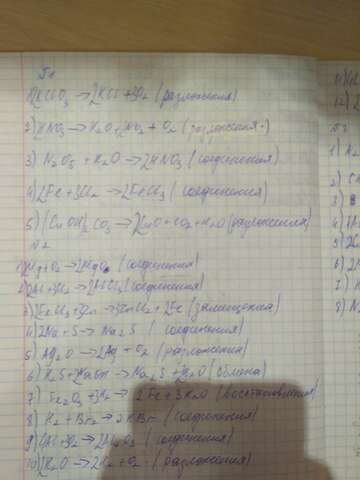 №1
1) 2KClO₃ → 2KCl + 3O₂ (разложения)
2) HNO₃ → H₂O + NO₂ + O₂ (разложения)
3) N₂O₅ + H₂O → 2HNO₃ (соединения)
4) 2Fe + 3Cl₂ → 2FeCl₃ (соединения)
5) (CuOH)₂CO₃ → 2CuO + CO₂ + H₂O (разложения)
№2
1) 2Mg + O₂ → 2MgO (соединения)
2) 2Al + 3Cl₂ → 2AlCl₃ (соединения)
3) 2FeCl₃ + 3Zn → 3ZnCl₂ + 2Fe (замещения)
4) 2Na + S → Na₂S (соединения)
5) Ag₂O → 2Ag + O₂ (разложения)
6) H₂S + 2NaOH → Na₂S + 2H₂O (обмена)
7) Fe₂O₃ + 3H₂ → 2Fe + 3H₂O (восстановления)
8) H₂ + Br₂ → 2HBr (соединения)
9) Al + 3O₂ → 2Al₂O₃ (соединения)
10) 2H₂O → 2H₂ + O₂ (разложения)